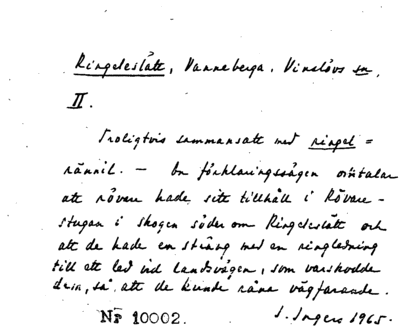 Ringeleslätt, Vanneberga. Vinslövs sn.
II.
Troligtvis sammansatt med ringel =
rännil. — En förklaringssägen omtalar
att rövare hade sitt tillhåll i Rövare-
stugan i skogen söder om Ringeleslätt och
att de hade en sträng med en ringledning
till ett led vid landsvägen, som varskodde
dem, så att de kunde råna vägfarande.
Nr 10002. I. Ingers 1965.